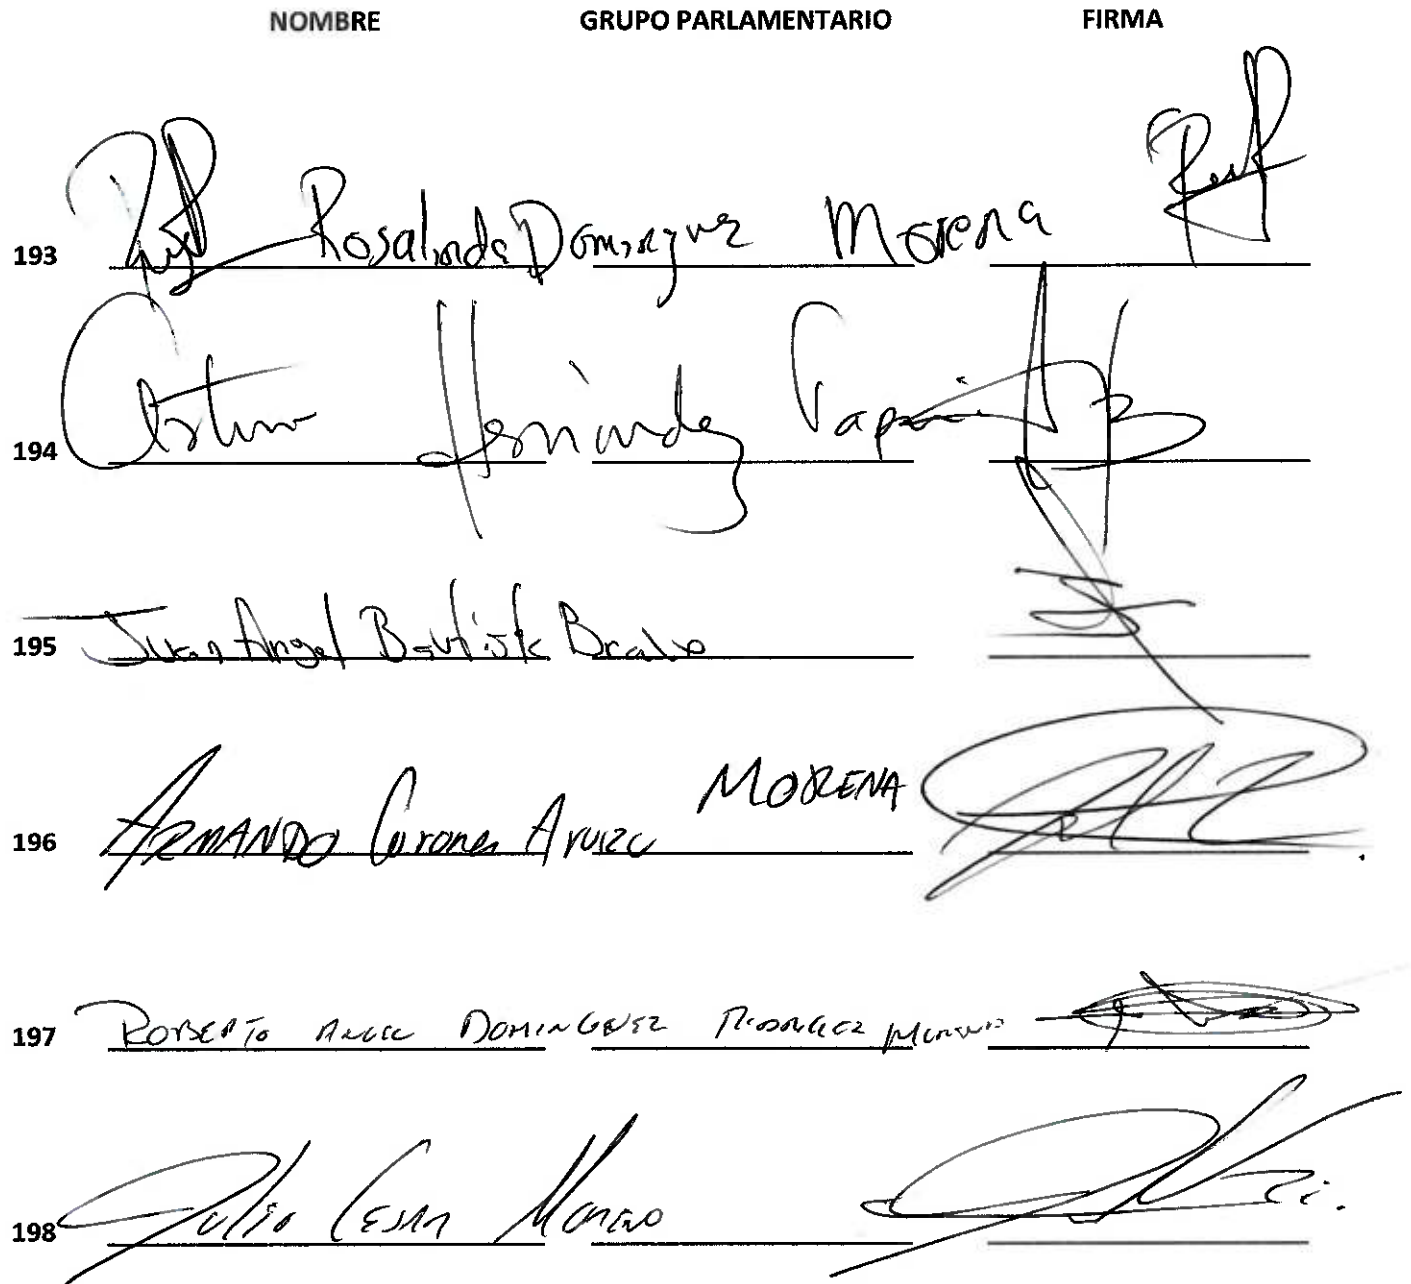 NOMBRE GRUPO PARLAMENTARIO FIRMA
193 Rosalinda Dominguez Morena
194 Arturo Hernández Tapia
195 Juan Angel Bautista Bravo
196 ARMANDO Corona Arvizu MORENA
197 ROBERTO ANGEL DOMINGUEZ RODRIGUEZ MORENA
198 Julio Cesar Moreno